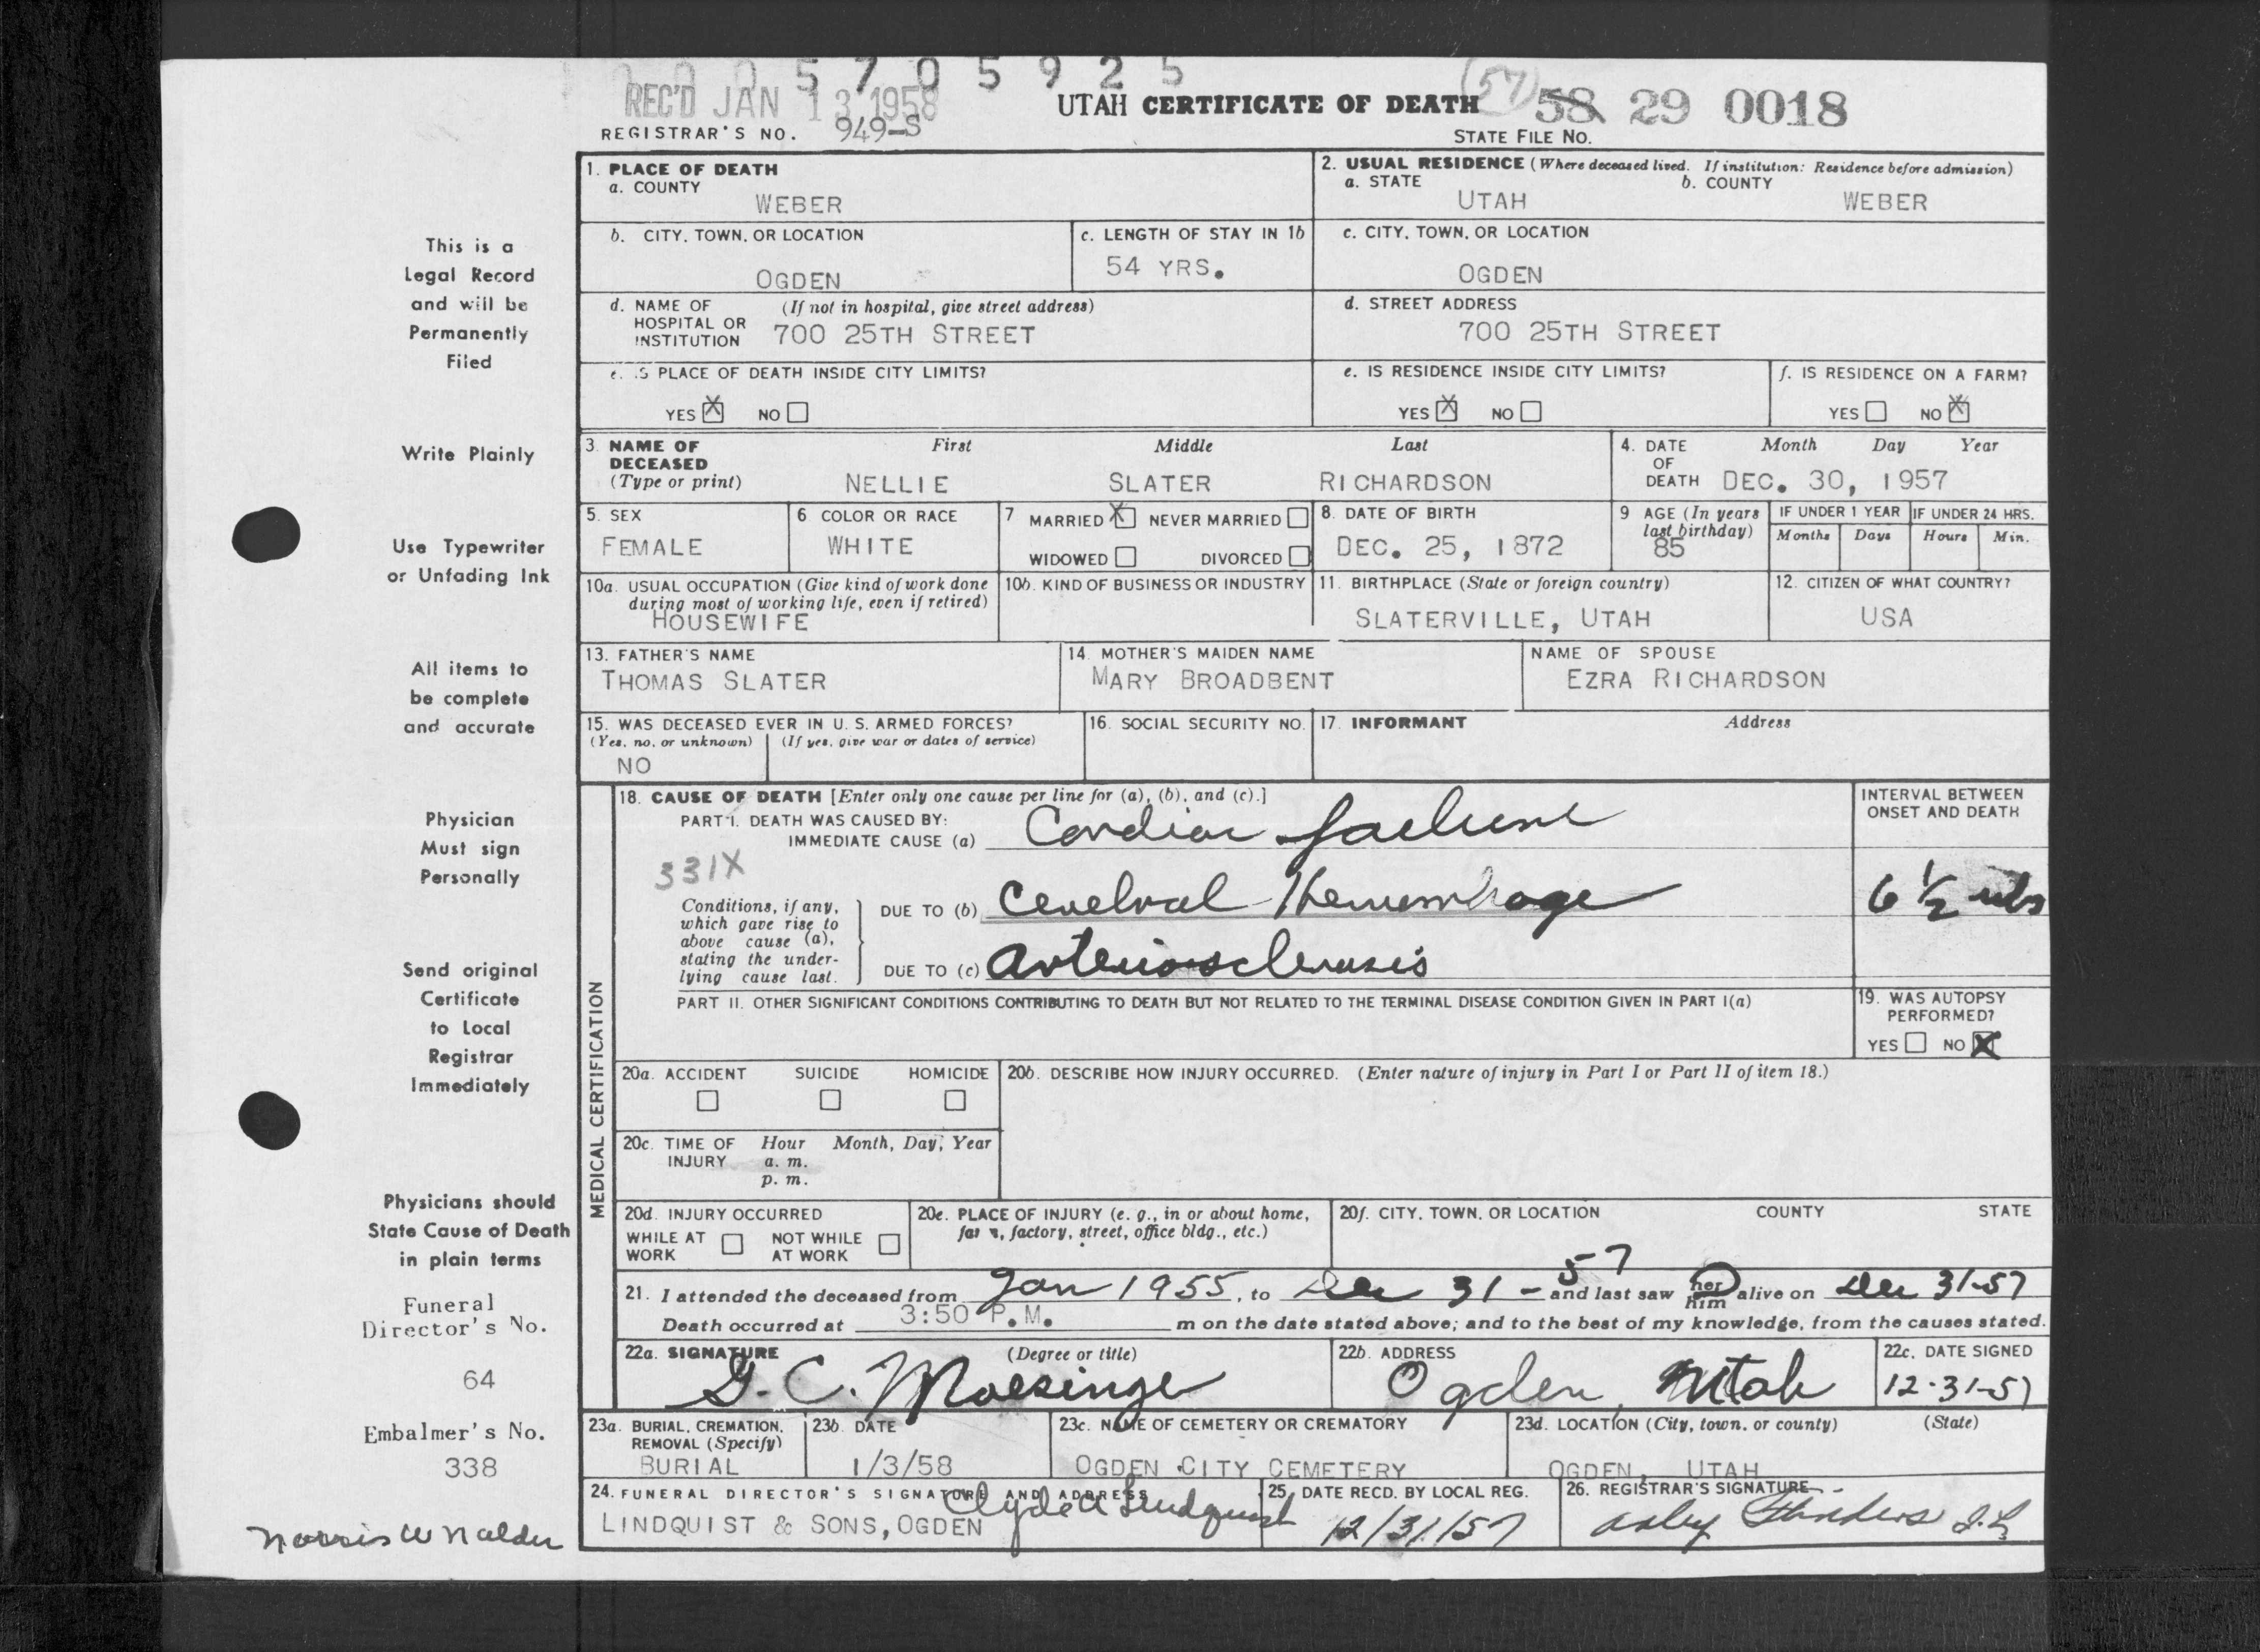 5 7 0 5 9 2 5
REC'D JAN 13 1958
UTAH CERTIFICATE OF DEATH
(57) 58 29 0018
REGISTRAR'S NO. 949-S
STATE FILE NO.
1. PLACE OF DEATH
a. COUNTY
WEBER
2. USUAL RESIDENCE (Where deceased lived. If institution: Residence before admission)
a. STATE
UTAH
b. COUNTY
WEBER
b. CITY, TOWN, OR LOCATION
OGDEN
c. LENGTH OF STAY IN 1b
54 YRS.
c. CITY, TOWN, OR LOCATION
OGDEN
d. NAME OF HOSPITAL OR INSTITUTION
(If not in hospital, give street address)
700 25TH STREET
d. STREET ADDRESS
700 25TH STREET
e. IS PLACE OF DEATH INSIDE CITY LIMITS?
YES X NO
e. IS RESIDENCE INSIDE CITY LIMITS?
YES X NO
f. IS RESIDENCE ON A FARM?
YES NO X
3. NAME OF DECEASED
(Type or print)
First Middle Last
NELLIE SLATER RICHARDSON
4. DATE OF DEATH
Month Day Year
DEC. 30, 1957
5. SEX
FEMALE
6 COLOR OR RACE
WHITE
7 MARRIED X NEVER MARRIED
WIDOWED DIVORCED
8. DATE OF BIRTH
DEC. 25, 1872
9 AGE (In years last birthday)
85
IF UNDER 1 YEAR
Months Days
IF UNDER 24 HRS.
Hours Min.
10a. USUAL OCCUPATION (Give kind of work done during most of working life, even if retired)
HOUSEWIFE
10b. KIND OF BUSINESS OR INDUSTRY
11. BIRTHPLACE (State or foreign country)
SLATERVILLE, UTAH
12. CITIZEN OF WHAT COUNTRY?
USA
13. FATHER'S NAME
THOMAS SLATER
14. MOTHER'S MAIDEN NAME
MARY BROADBENT
NAME OF SPOUSE
EZRA RICHARDSON
15. WAS DECEASED EVER IN U. S. ARMED FORCES?
(Yes, no, or unknown) (If yes, give war or dates of service)
NO
16. SOCIAL SECURITY NO.
17. INFORMANT Address
MEDICAL CERTIFICATION
18. CAUSE OF DEATH [Enter only one cause per line for (a), (b), and (c).]
PART I. DEATH WAS CAUSED BY:
IMMEDIATE CAUSE (a) Cardiac failure
331X
Conditions, if any, which gave rise to above cause (a), stating the underlying cause last.
DUE TO (b) Cerebral Hemorrhage
DUE TO (c) arteriosclerosis
INTERVAL BETWEEN ONSET AND DEATH
6 1/2
PART II. OTHER SIGNIFICANT CONDITIONS CONTRIBUTING TO DEATH BUT NOT RELATED TO THE TERMINAL DISEASE CONDITION GIVEN IN PART I(a)
19. WAS AUTOPSY PERFORMED?
YES NO X
20a. ACCIDENT SUICIDE HOMICIDE
20b. DESCRIBE HOW INJURY OCCURRED. (Enter nature of injury in Part I or Part II of item 18.)
20c. TIME OF INJURY
Hour Month, Day, Year
a. m.
p. m.
20d. INJURY OCCURRED
WHILE AT WORK NOT WHILE AT WORK
20e. PLACE OF INJURY (e. g., in or about home, farm, factory, street, office bldg., etc.)
20f. CITY, TOWN, OR LOCATION COUNTY STATE
21. I attended the deceased from Jan 1955, to Dec 31-57 and last saw her him alive on Dec 31-57
Death occurred at 3:50 P.M. m on the date stated above; and to the best of my knowledge, from the causes stated.
22a. SIGNATURE (Degree or title)
G. C. Moesinge
22b. ADDRESS
Ogden, Utah
22c. DATE SIGNED
12-31-57
23a. BURIAL, CREMATION, REMOVAL (Specify)
BURIAL
23b. DATE
1/3/58
23c. NAME OF CEMETERY OR CREMATORY
OGDEN CITY CEMETERY
23d. LOCATION (City, town, or county) (State)
OGDEN, UTAH
24. FUNERAL DIRECTOR'S SIGNATURE AND ADDRESS
Clyde A Lindquist
LINDQUIST & SONS, OGDEN
25. DATE RECD. BY LOCAL REG.
12/31/57
26. REGISTRAR'S SIGNATURE
This is a
Legal Record
and will be
Permanently
Filed
Write Plainly
Use Typewriter
or Unfading Ink
All items to
be complete
and accurate
Physician
Must sign
Personally
Send original
Certificate
to Local
Registrar
Immediately
Physicians should
State Cause of Death
in plain terms
Funeral
Director's No.
64
Embalmer's No.
338
Norris W Nalder